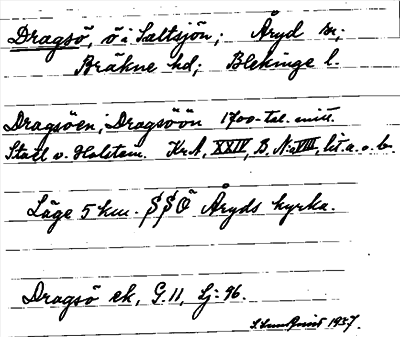 Dragsö, ö i Saltsjön; Åryd sn;
Bräkne hd; Blekinge l.
Dragsöen; Dragsöön 1700-tal. mitt.
Stael v. Holstein. Kr.A, XXIV, B, N:o VIII, lit a. o. b.
Läge 5 km. SSO Åryds kyrka.
Dragsö ek, G. 11, Lj: 96.
1927.